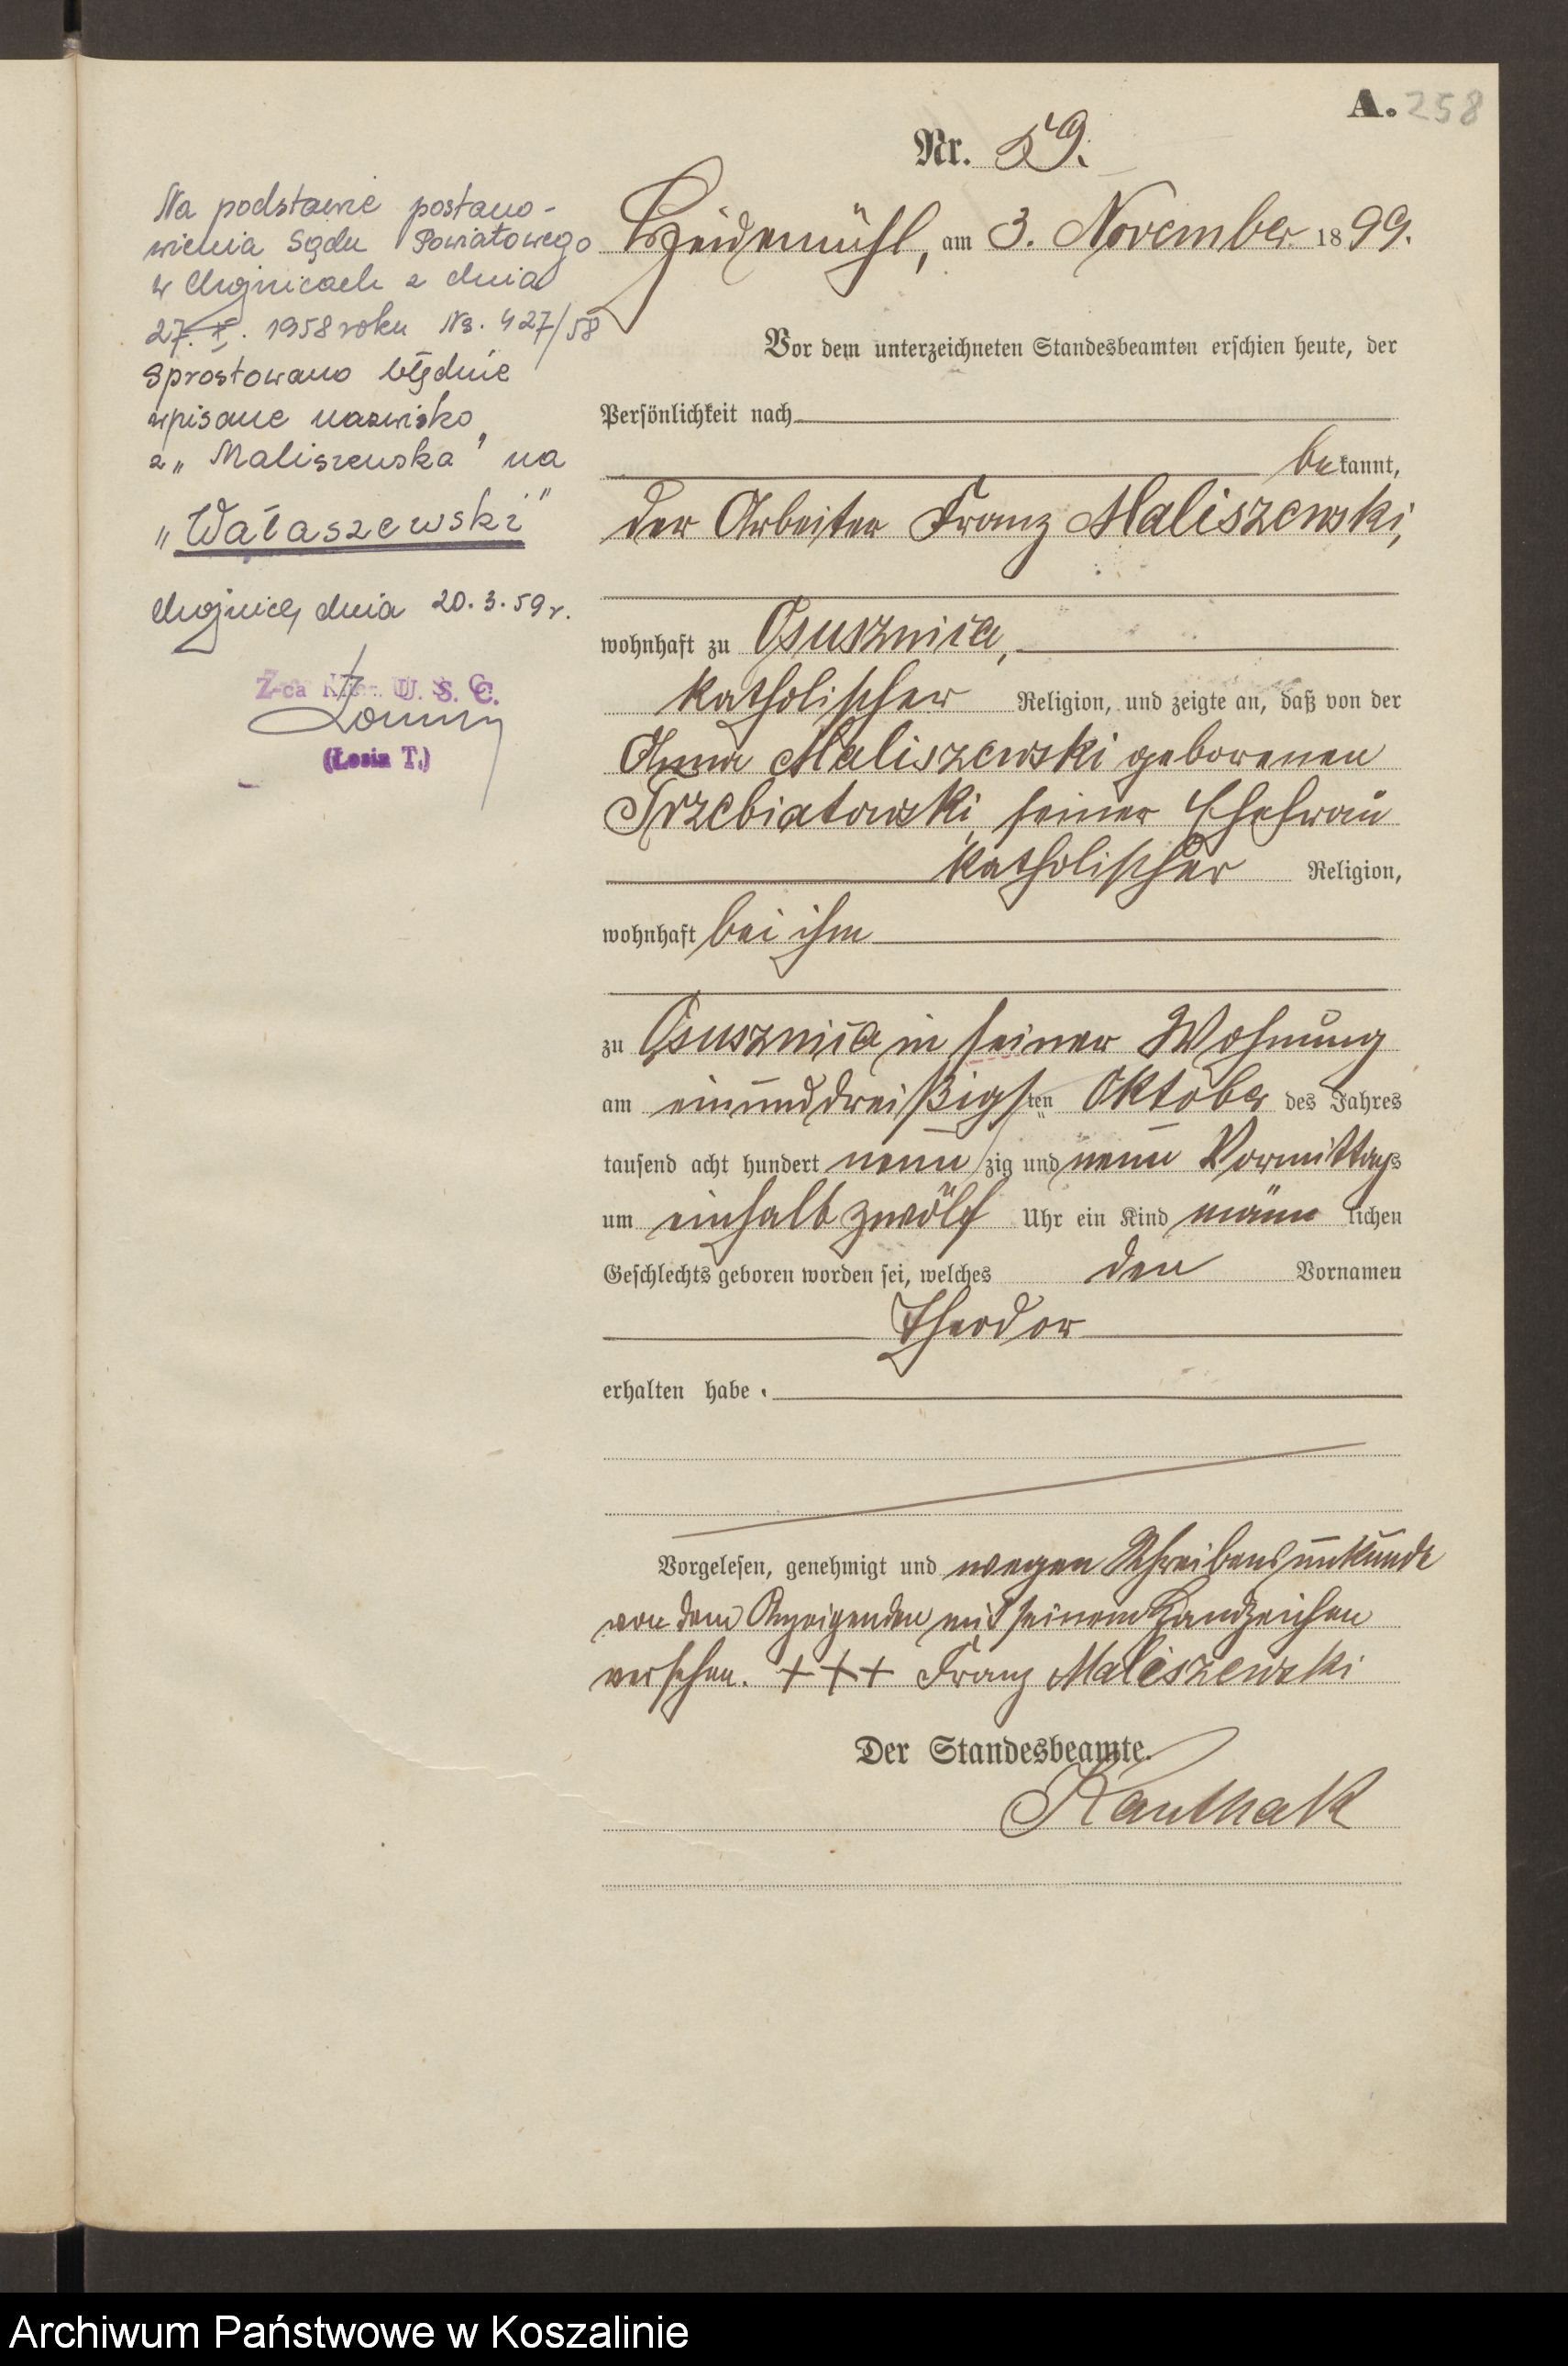 A. 258
Nr. 59.
Heidemühl, am 3. November 1899.
Vor dem unterzeichneten Standesbeamten erschien heute, der
Persönlichkeit nach
bekannt,
der Arbeiter Franz Maliszewski,
wohnhaft zu Osusznica,
katholischer Religion, und zeigte an, daß von der
Anna Maliszewski geborenen
Trzebiatowski, seiner Ehefrau
katholischer Religion,
wohnhaft bei ihm
zu Osusznica in seiner Wohnung
am einunddreißigsten Oktober des Jahres
tausend acht hundert neunzig und neun Vormittags
um einhalb zwölf Uhr ein Kind männlichen
Geschlechts geboren worden sei, welches den Vornamen
Theodor
erhalten habe.
Vorgelesen, genehmigt und wegen Schreibensunkunde
von dem Anzeigenden mit seinem Handzeichen
versehen. +++ Franz Maliszewski
Der Standesbeamte.
Na podstawie postano-
wienia Sądu Powiatowego
w Chojnicach z dnia
27. X. 1958 roku Ns. 427/58
sprostowano błędnie
wpisane nazwisko
z „Maliszewska" na
„Wałaszewski"
Chojnice, dnia 20.3.59 r.
Z-ca Kier. U. S. C.
(Losin T.)
Archiwum Państwowe w Koszalinie